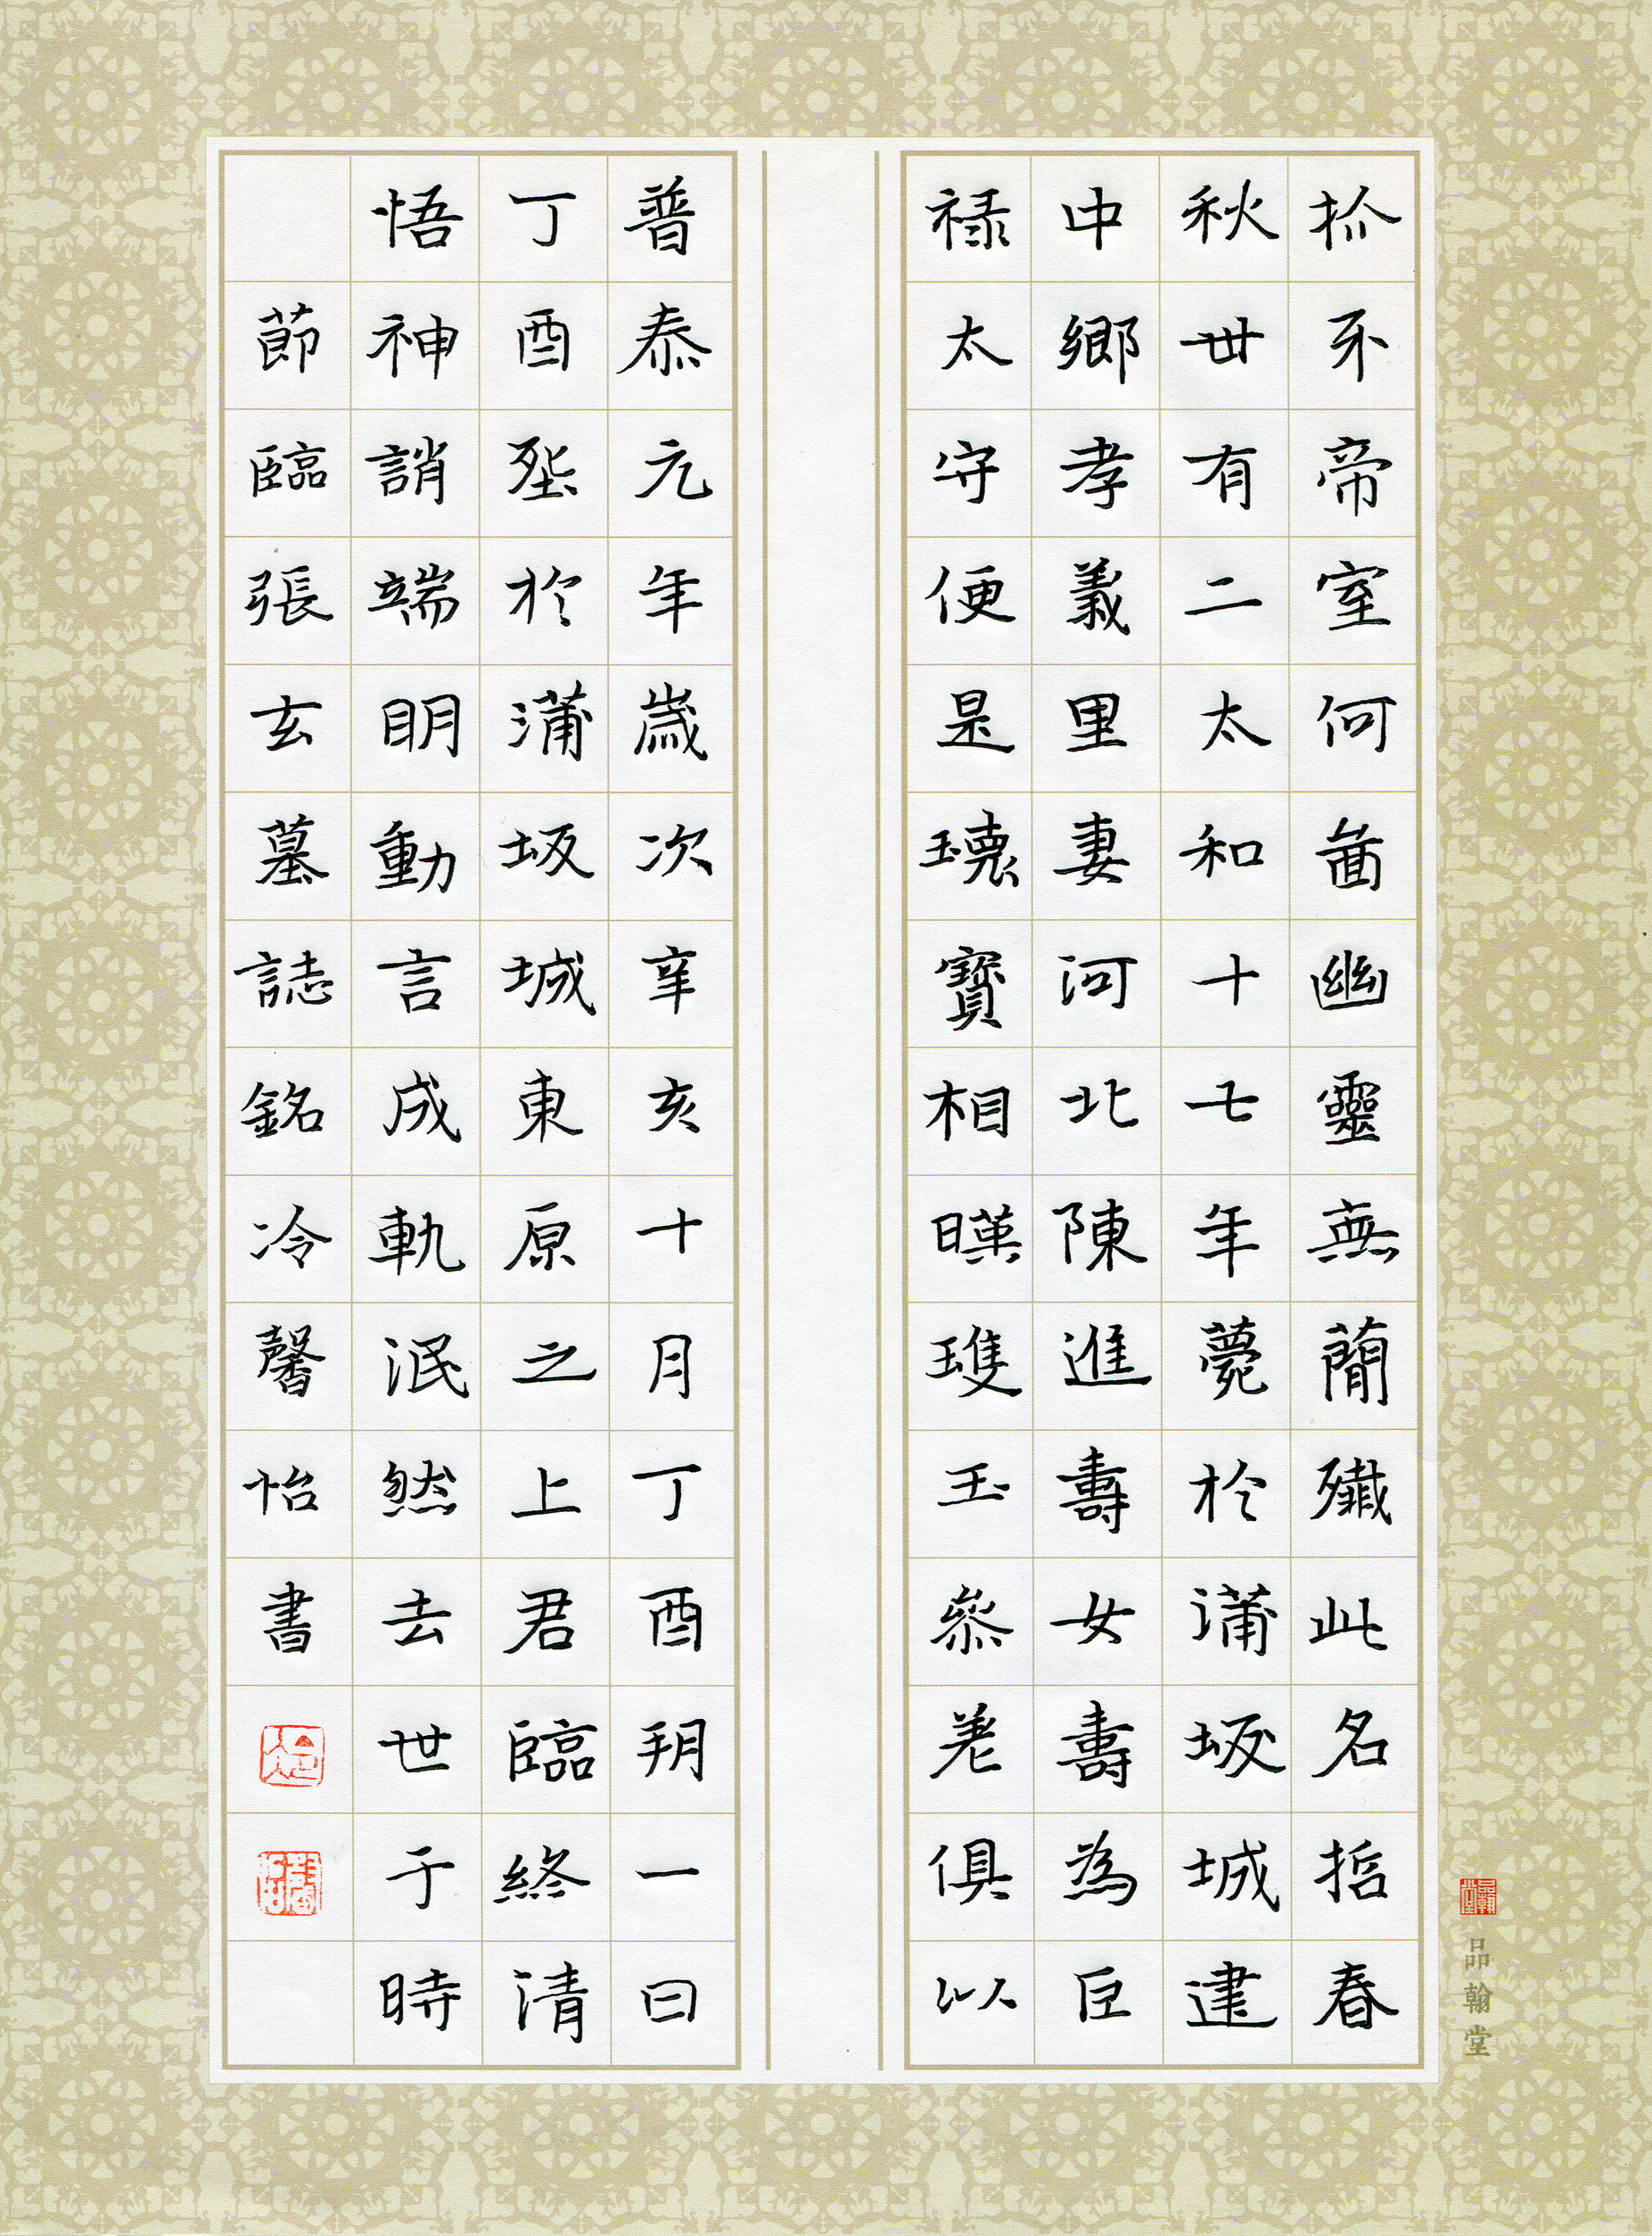 於不帝室何啚幽靈無簡殲此名哲春
秋丗有二太和十七年薨於蒲坂城建
中鄉孝義里妻河北陳進壽女壽為巨
祿太守便是瓌寶相暎瓊玉參差俱以
普泰元年歲次辛亥十月丁酉朔一日
丁酉塟於蒲坂城東原之上君臨終清
悟神誚端明動言成軌泯然去世于時
節臨張玄墓誌銘冷馨怡書
品翰堂